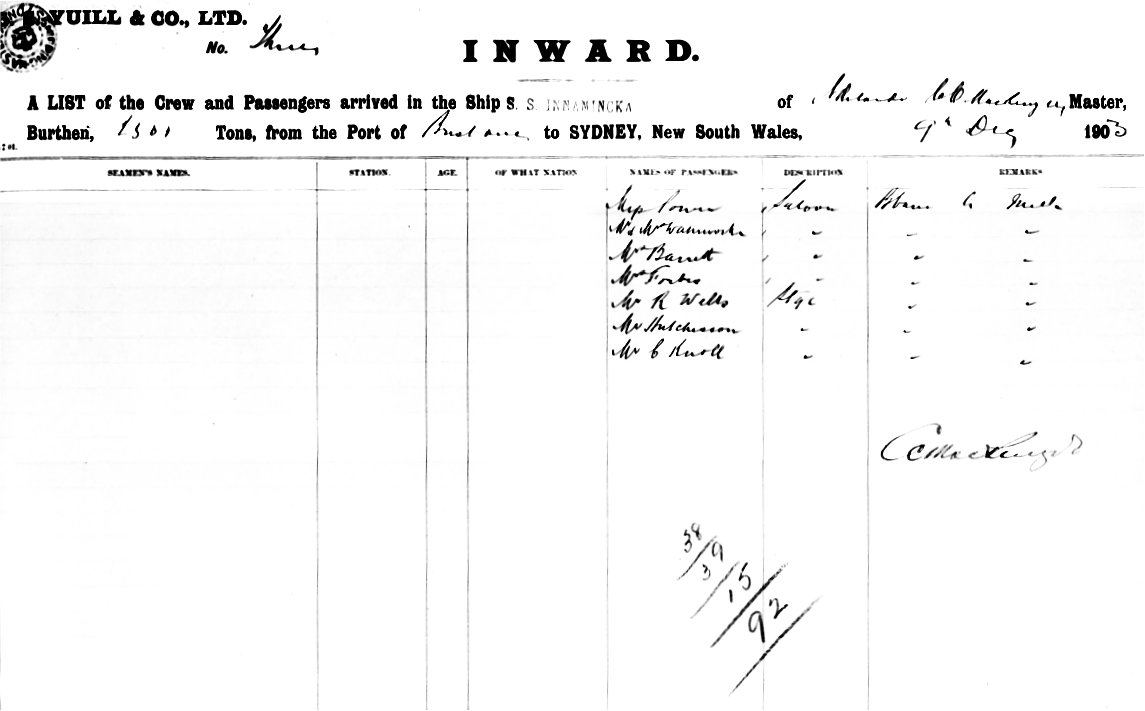 YUILL & CO., LTD.
No. Three
INWARD.
A LIST of the Crew and Passengers arrived in the Ship S. S. INNAMINCKA of Adelaide Master,
Burthen, Tons, from the Port of Brisbane to SYDNEY, New South Wales, 9th Dec 1903
SEAMEN'S NAMES. STATION. AGE. OF WHAT NATION NAMES OF PASSENGERS DESCRIPTION REMARKS
Miss Power Saloon Bbane to
" " "
Mrs Barrett " " "
Mrs Forbes " " "
Mr R Wells Stge " "
Mr Hutchesson " " "
Mr C Knoll " " "
38
39
15
92